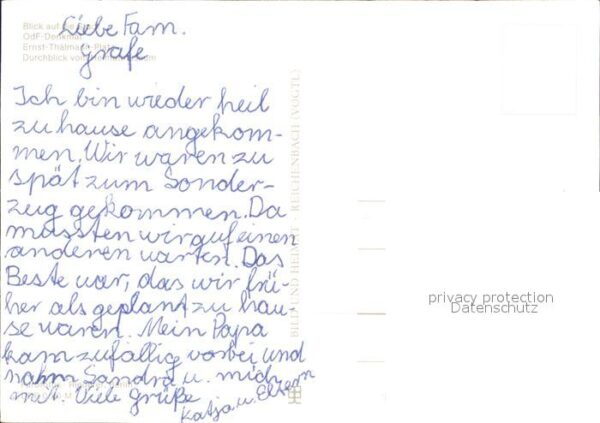 Liebe Fam.
Grafe
Ich bin wieder heil
zu hause angekom-
men. Wir waren zu
spät zum Sonder-
zug gekommen. Da
mussten wir auf einen
anderen warten. Das
Beste war, das wir frü-
her als geplant zu hau-
se waren. Mein Papa
kam zufällig vorbei und
nahm Sandra u. mich
mit. Viele Grüße
Katja u. Eltern
Blick auf die
OdF-Denkmal
Ernst-Thälmann-Platz
Durchblick vom
BILD UND HEIMAT REICHENBACH (VOGTL)
privacy protection
Datenschutz